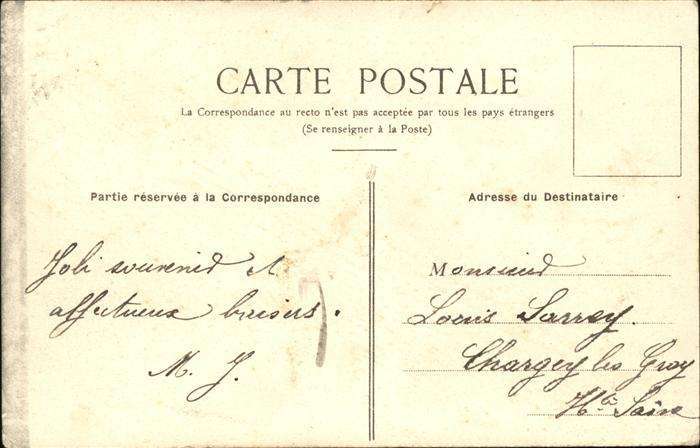 CARTE POSTALE
La Correspondance au recto n'est pas acceptée par tous les pays étrangers
(Se renseigner à la Poste)
Partie réservée à la Correspondance
Adresse du Destinataire
Joli souvenir et
affectueux baisers.
M. J.
Monsieur
Louis Sarrey.
Chargey les Gray
Hte Saône